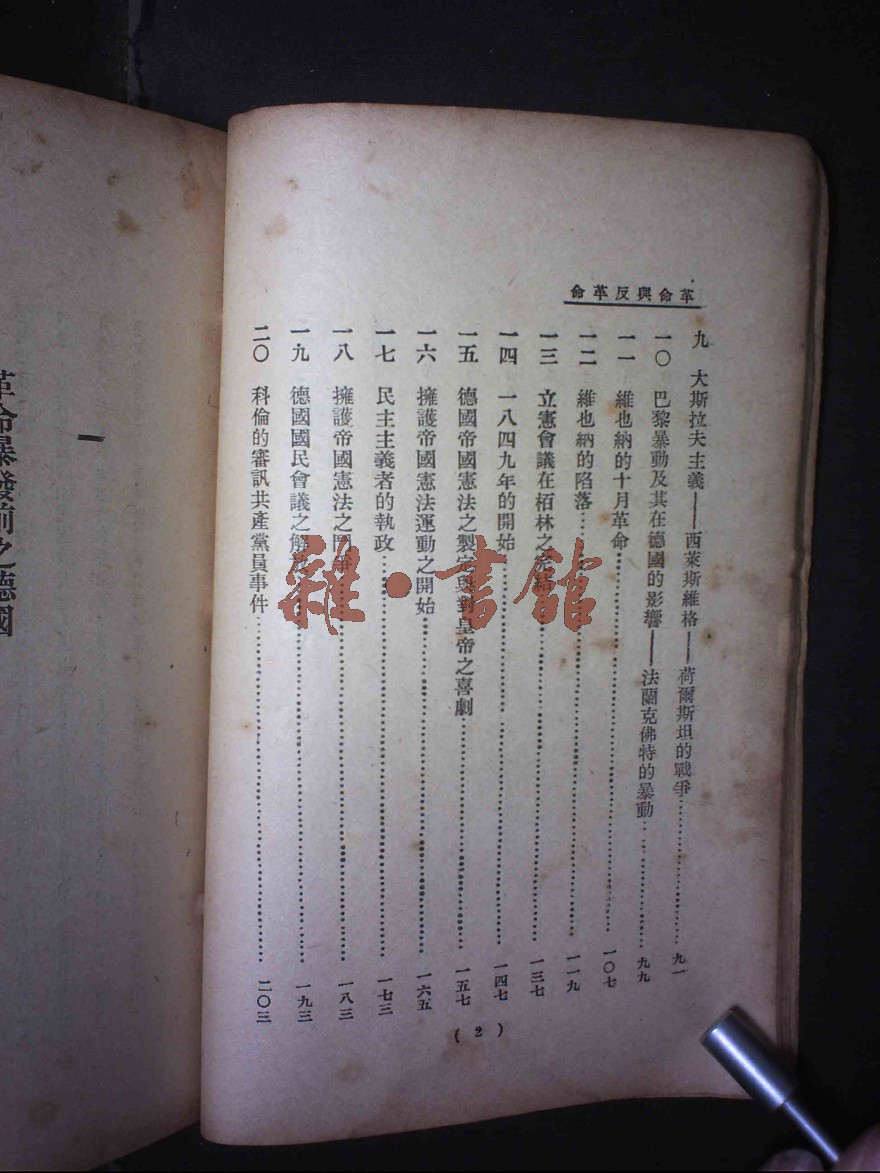 革命與反革命
九 大斯拉夫主義——西萊斯維格——荷爾斯坦的戰爭……九一
一〇 巴黎暴動及其在德國的影響——法蘭克佛特的暴動……九九
一一 維也納的十月革命……一〇七
一二 維也納的陷落……一一九
一三 立憲會議在栢林之完結……一三七
一四 一八四九年的開始……一四七
一五 德國帝國憲法之製定與對皇帝之喜劇……一五七
一六 擁護帝國憲法運動之開始……一六五
一七 民主主義者的執政……一七三
一八 擁護帝國憲法之鬥爭……一八三
一九 德國國民會議之解散……一九三
二〇 科倫的審訊共產黨員事件……二〇三
( 2 )
一
革命暴發前之德國
雜·書館